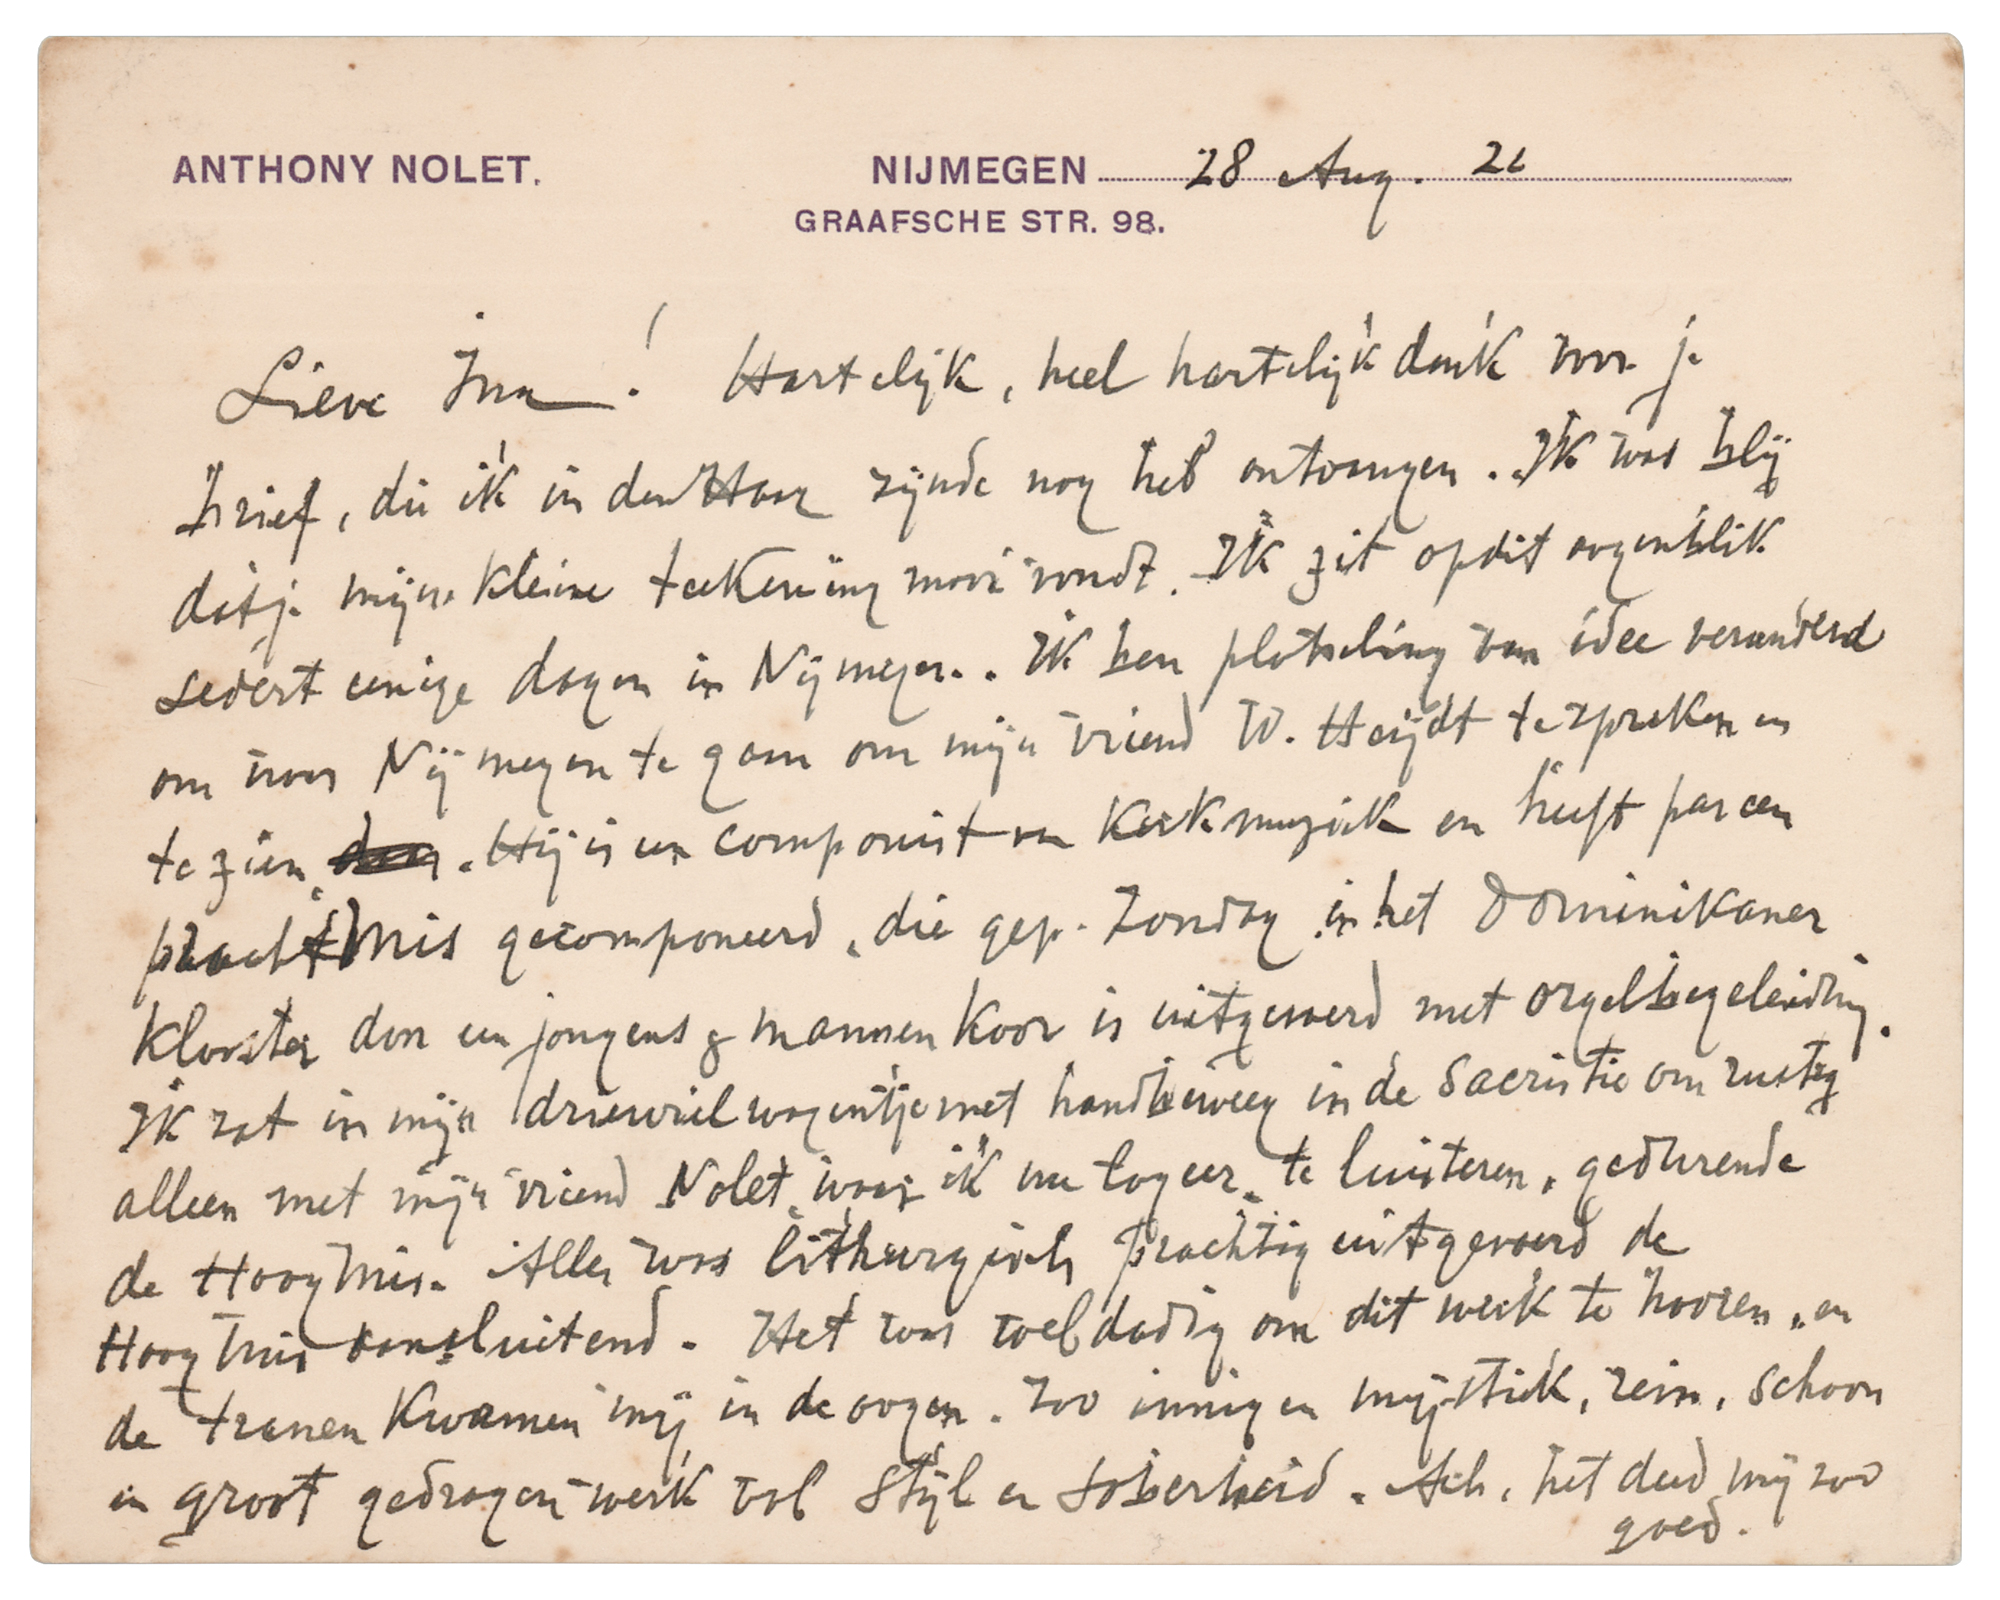 ANTHONY NOLET.
NIJMEGEN 28 Aug.
GRAAFSCHE STR. 98.
Lieve Ina! Hartelijk, heel hartelijk dank voor je
brief, die ik in den Haag zijnde nog heb ontvangen. Ik was blij
dat je mijne kleine teekening mooi vondt. Ik zit op dit oogenblik
sedert eenige dagen in Nijmegen. Ik ben plotseling van idee veranderd
om voor Nijmegen te gaan om mijn vriend W. Heijdt te spreken en
te zien. Hij is een componist van Kerkmuziek en heeft pas een
pracht Mis gecomponeerd, die gep. Zondag in het Dominikaner
Klooster door een jongens & mannen Koor is uitgevoerd met orgelbegeleiding.
Ik zat in mijn driewielwagentje met handbeweeg in de Sacristie om rustig
alleen met mijn vriend Nolet, waar ik nu logeer, te luisteren, gedurende
de Hoogmis. Alles was lithurgisch prachtig uitgevoerd de
Hoogmis aansluitend. Het was weldadig om dit werk te hooren, en
de tranen Kwamen mij in de oogen. Zoo innig en mijstiek, rein, schoon
en groot gedragen werk vol Stijl en soberheid. Ach, het deed mij zoo
goed.